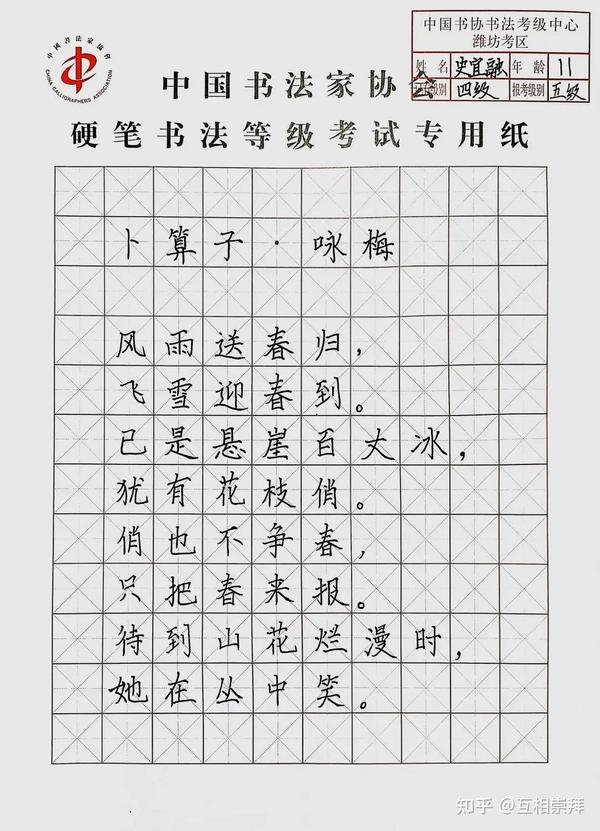 中国书法家协会
CHINA CALLIGRAPHERS ASSOCIATION
中国书协书法考级中心
潍坊考区
姓名 史宜融 年龄 11
级别 四级 报考级别 五级
中国书法家协会
硬笔书法等级考试专用纸
卜算子·咏梅
风雨送春归，
飞雪迎春到。
已是悬崖百丈冰，
犹有花枝俏。
俏也不争春，
只把春来报。
待到山花烂漫时，
她在丛中笑。
知乎 @互相崇拜